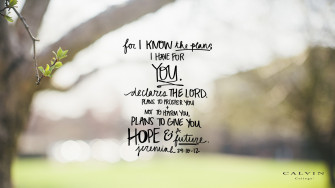 for I KNOW the plans
I HAVE FOR
YOU,
declares THE LORD.
PLANS TO PROSPER YOU
NOT TO HARM YOU,
PLANS TO GIVE YOU
HOPE & a future.
jeremiah 29:10-12
CALVIN
College